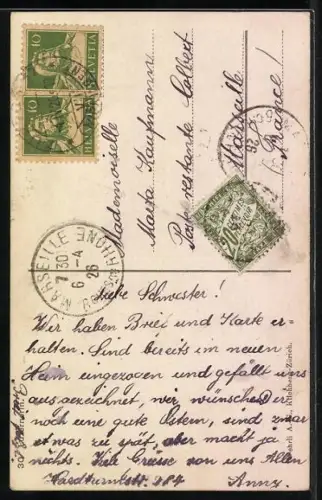 10 10
HELVETIA HELVETIA
Mademoiselle
Marta Kaufmann
Poste restante Colbert
Marseille
(France)
MARSEILLE
7 30
6 - 4
26
BCHES DU RHONE
Liebe Schwester!
Wir haben Brief und Karte er-
halten. Sind bereits im neuen
Heim eingezogen und gefällt uns
ausgezeichnet, wir wünschen
noch eine gute Ostern, sind zwar
etwas zu spät, aber macht ja
nichts. Viele Grüsse von uns Allen
Hardturmstr. 284 Anny.